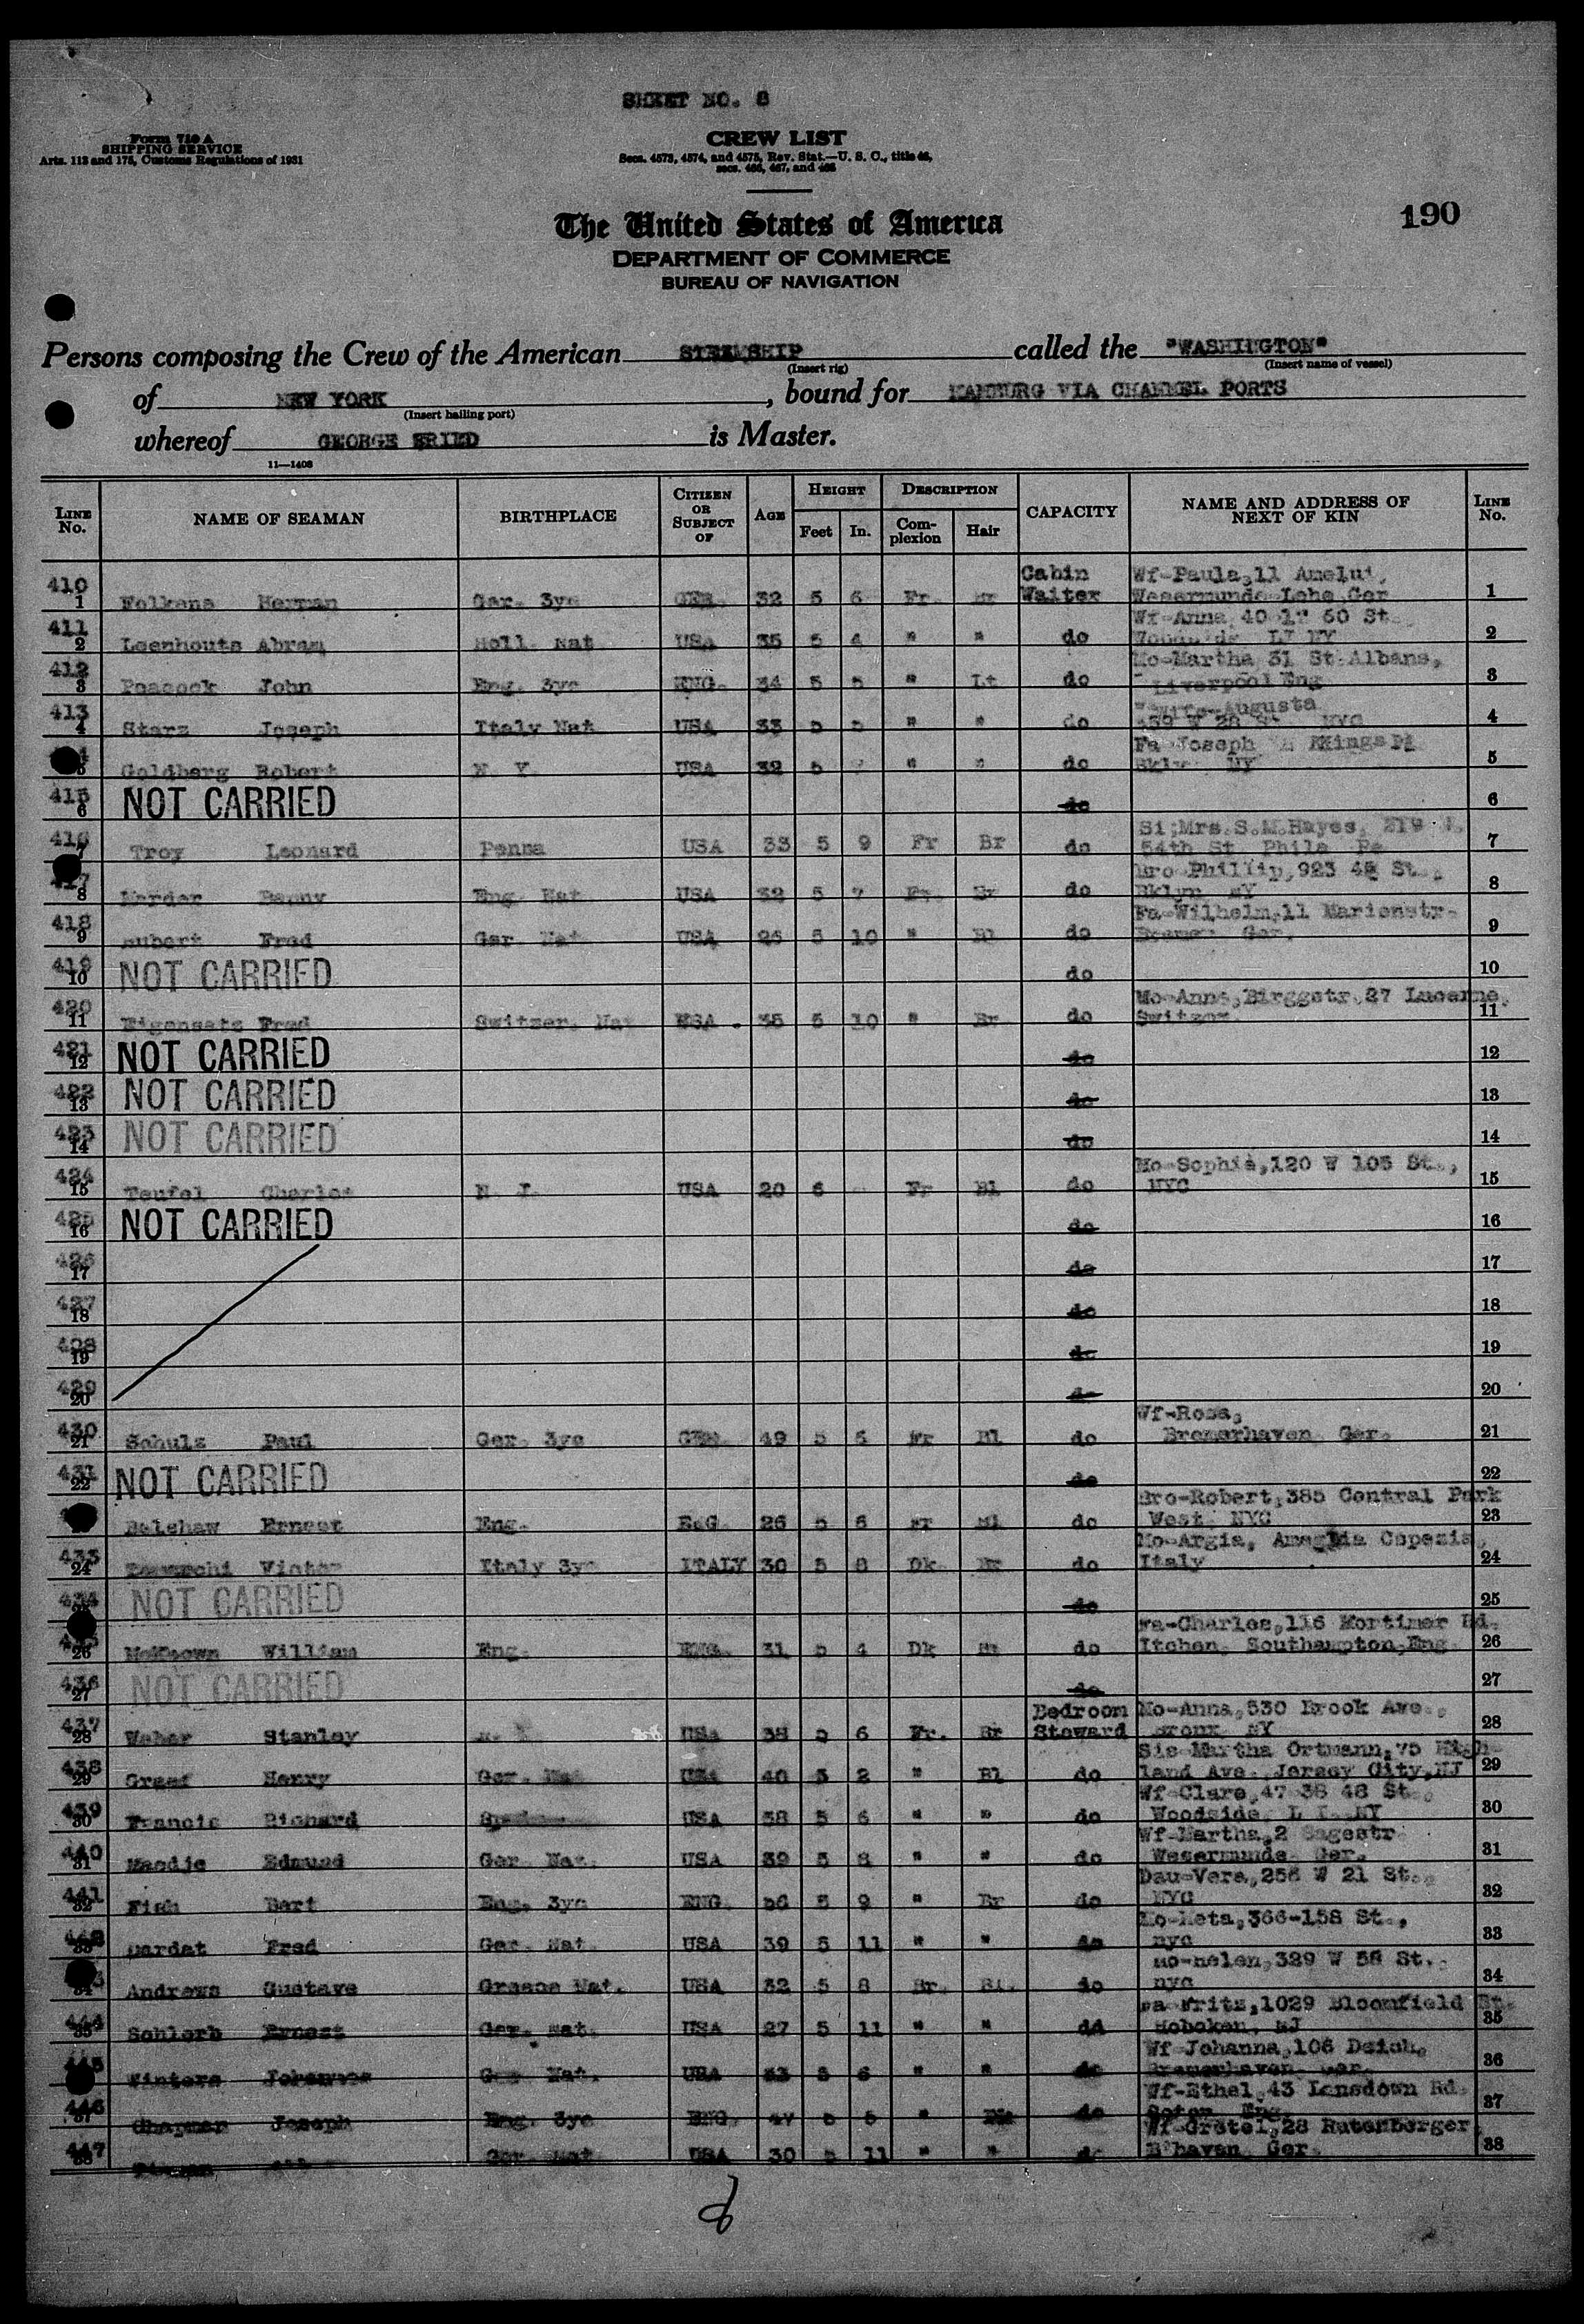 SHEET NO. 8
Form 710 A
SHIPPING SERVICE
Arts. 113 and 175, Customs Regulations of 1931
CREW LIST
Secs. 4573, 4574, and 4575, Rev. Stat.—U. S. C., title 46,
secs. 466, 467, and 468
The United States of America
190
DEPARTMENT OF COMMERCE
BUREAU OF NAVIGATION
Persons composing the Crew of the American STEAMSHIP called the "WASHINGTON"
(Insert rig) (Insert name of vessel)
of NEW YORK, bound for HAMBURG VIA CHANNEL PORTS
(Insert hailing port)
whereof GEORGE FRIED is Master.
11—1408
LINE No. NAME OF SEAMAN BIRTHPLACE CITIZEN OR SUBJECT OF AGE HEIGHT Feet In. DESCRIPTION Complexion Hair CAPACITY NAME AND ADDRESS OF NEXT OF KIN LINE No.
410 1 Folkens Herman Ger. 3yc GER. 32 5 6 Fr. Br Cabin Waiter Wf-Paula, 11 1
Wesermunde Lehe Ger
411 2 Leenhouts Abram Holl. Nat USA 35 5 4 " " do Wf-Anna, 40 17 60 St. 2
NY
412 3 Peacock John Eng. 3yc ENG. 34 5 5 " Lt do Mo-Martha 31 St Albans, 3
Liverpool Eng
413 4 Starz Joseph Italy Nat USA 33 5 " " do Wife-Augusta 4
W 28 St NYC
5 Goldberg Robert N. Y. USA 32 5 " " do Fa Joseph 5
NY
415 6 NOT CARRIED do 6
416 7 Troy Leonard Penna USA 33 5 9 Fr Br do Si;Mrs.S.M.Hayes, 7
54th St Phila Pa
8 Benny Eng Nat USA 32 5 7 Fr. Br do Bro Phillip, 923 St., 8
Bklyn NY
418 9 Fred Ger Nat USA 26 5 10 " Bl do Fa-Wilhelm, 11 Marienstr- 9
Bremen Ger.
419 10 NOT CARRIED do 10
420 11 Eigensatz Fred Switzer. Nat USA. 35 5 10 " Br do Mo-Anna, Birggstr. 27 Lucerne, 11
Switzer
421 12 NOT CARRIED do 12
422 13 NOT CARRIED do 13
423 14 NOT CARRIED do 14
424 15 Teufel Charles N. J. USA 20 6 - Fr Bl do Mo-Sophie, 120 W 105 St., 15
NYC
425 16 NOT CARRIED do 16
426 17 do 17
427 18 do 18
428 19 do 19
429 20 do 20
430 21 Schulz Paul Ger. 3yc GER. 49 5 Fr Bl do Wf-Rosa, 21
Bremerhaven Ger.
431 22 NOT CARRIED do 22
Belshaw Ernest Eng. ENG 26 5 6 Fr Bl do Bro-Robert, 385 Central Park 23
West NYC
433 24 Victor Italy 3yc ITALY 30 5 8 Dk Br do Mo-Argia, 24
Italy
434 NOT CARRIED do 25
26 McKeown William Eng. ENG. 31 5 4 Dk do Fa-Charles, 116 Mortimer Rd. 26
Itchen Southampton Eng
436 27 NOT CARRIED do 27
437 28 Weber Stanley USA 38 5 6 Fr. Br Bedroom Steward Mo-Anna, 530 Brook Ave., 28
Bronx NY
438 29 Graef Henry Ger. Nat USA 40 5 2 " Bl do Sis Martha Ortmann, 75 High- 29
land Ave. Jersey City, NJ
439 30 Francis Richard USA 38 5 6 " " do Wf-Clare, 47 38 48 St., 30
Woodside L I NY
440 31 Edmund Ger Nat. USA 39 5 8 " " do Wf-Martha, 2 31
Wesermunde Ger.
441 32 Fish Bert Eng. 3yc ENG 56 5 9 " Br do Dau-Vera, 256 W 21 St., 32
NYC
33 Fred Ger. Nat USA 39 5 11 " " do Mo-Meta, 366-158 St., 33
nyc
34 Andrews Gustave Greece Nat. USA 32 5 8 Br. Bl. do Mo-Helen, 329 W 58 St. 34
nyc
444 35 Schlerb Ernest Ger. Nat. USA 27 5 11 " " do Fa Fritz, 1029 Bloomfield St. 35
Hoboken, NJ
445 Winters Johannes Ger Nat. USA 33 5 6 " " do Wf Johanna, 106 Deich, 36
Bremerhaven Ger.
446 37 Chapman Joseph Eng. 3yc ENG. 47 5 5 " do Wf-Ethel, 43 Lansdown Rd. 37
Soton Eng.
447 38 Ger Nat USA 30 5 11 " " do Wf-Gretel, 28 Rutenberger 38
B'haven Ger.
8